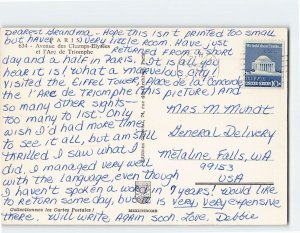 Dearest Grandma. Hope this isn't printed too small
but have very little room. Have just
PARIS
634 - Avenue des Champs-Elysées
et l'Arc de Triomphe
returned from a short
day and a half in Paris. Lots as all you
hear it is! What a marvelous city! I
visited the Eiffel Tower, Place de la Concorde
l'Arc de Triomphe (this picture) and
so many other sights—
too many to list! Only
wish I'd had more time
to see it all, but am still
thrilled I saw what I
did. I managed very well
with the language, even though
I haven't spoken a word in 7 years! Would like
to return some day, but is very very expensive
there. Will write again soon. Love, Debbie
Mrs. M. Mundt
General Delivery
Metaline Falls, WA
99153
USA
10c